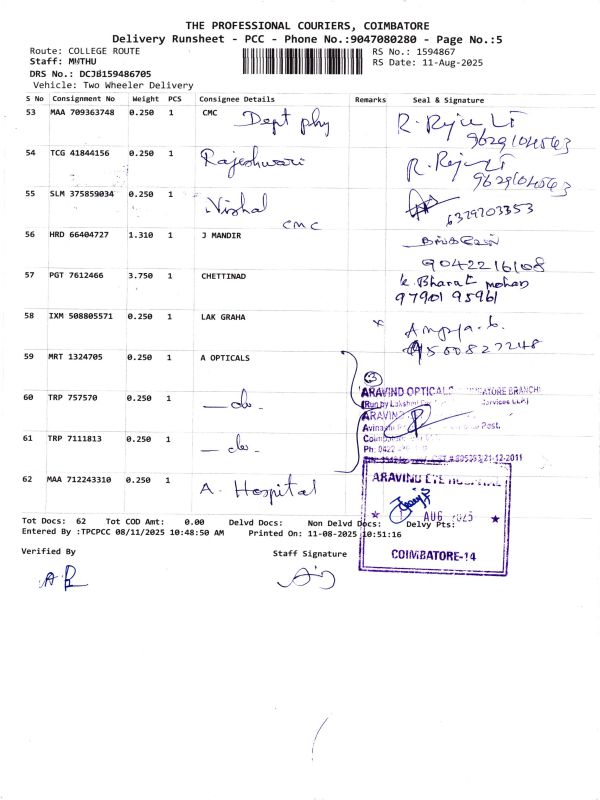 THE PROFESSIONAL COURIERS, COIMBATORE
Delivery Runsheet - PCC - Phone No.:9047080280 - Page No.:5
Route: COLLEGE ROUTE RS No.: 1594867
Staff: MUTHU RS Date: 11-Aug-2025
DRS No.: DCJB159486705
Vehicle: Two Wheeler Delivery
S No Consignment No Weight PCS Consignee Details Remarks Seal & Signature
53 MAA 709363748 0.250 1 CMC Dept phy
9629104563
54 TCG 41844156 0.250 1 Rajeshwari
9629104563
55 SLM 375859034 0.250 1 Nishal CMC
6379703353
56 HRD 66404727 1.310 1 J MANDIR
9042216108
57 PGT 7612466 3.750 1 CHETTINAD K. Bharat mohan
97901 95961
58 IXM 508805571 0.250 1 LAK GRAHA
59 MRT 1324705 0.250 1 A OPTICALS
60 TRP 757570 0.250 1 —do-
61 TRP 7111813 0.250 1 —do-
62 MAA 712243310 0.250 1 A. Hospital
ARAVIND OPTICALS
ARAVIND EYE HOSPITAL
AUG 2025
COIMBATORE-14
Tot Docs: 62 Tot COD Amt: 0.00 Delvd Docs: Non Delvd Docs: Delvy Pts:
Entered By :TPCPCC 08/11/2025 10:48:50 AM Printed On: 11-08-2025 10:51:16
Verified By Staff Signature